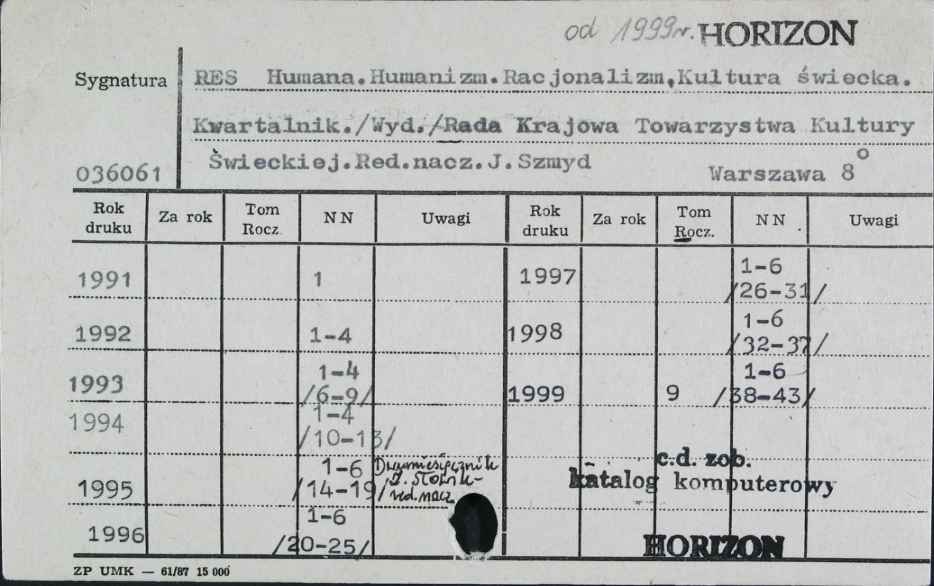 od 1999r. HORIZON
Sygnatura RES Humana.Humanizm.Racjonalizm,Kultura świecka.
Kwartalnik./Wyd./Rada Krajowa Towarzystwa Kultury
Świeckiej.Red.nacz.J.Szmyd
036061 Warszawa 8°
Rok druku Za rok Tom Rocz. NN Uwagi Rok druku Za rok Tom Rocz. NN Uwagi
1991 1 1997 1-6 /26-31/
1992 1-4 1998 1-6 /32-37/
1993 1-4 /6-9/ 1999 9 1-6 /38-43/
1994 1-4 /10-13/
1995 1-6 /14-19/ Dwumiesięcznik
red.nacz
c.d. zob.
katalog komputerowy
1996 1-6 /20-25/
HORIZON
ZP UMK — 61/87 15 000